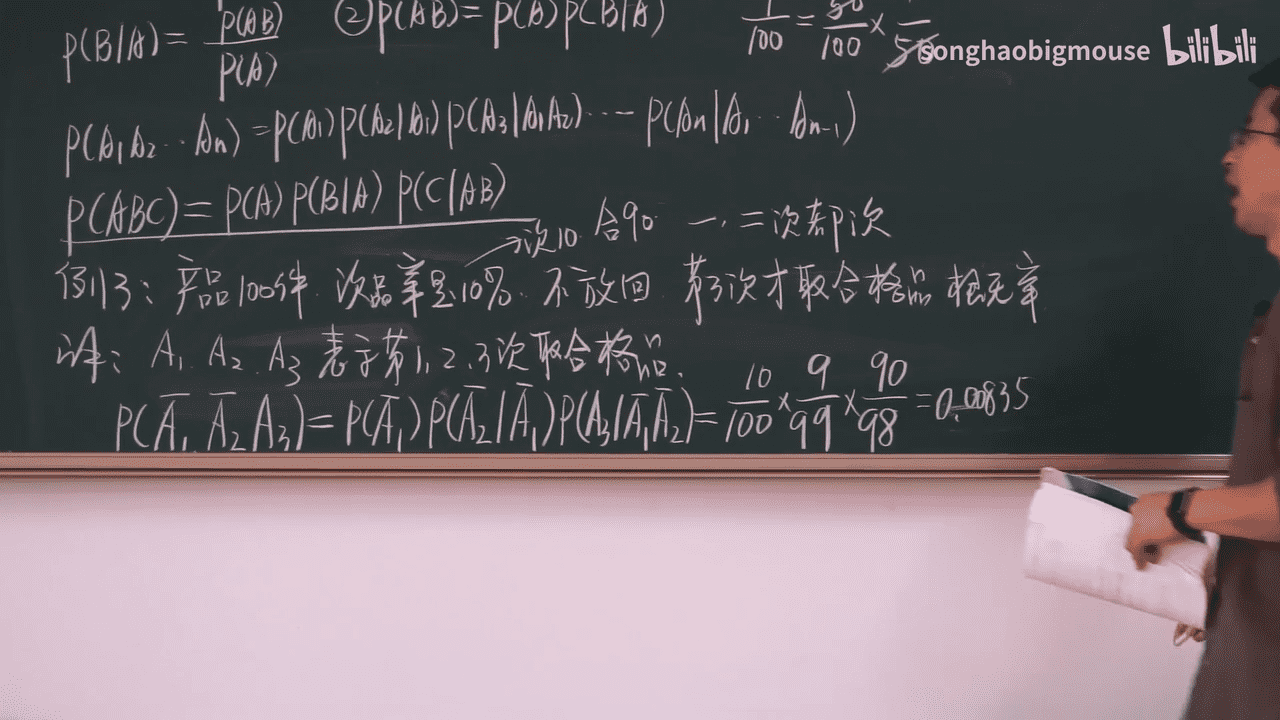 P(B|A) = P(AB)/P(A) ②P(AB) = P(A)P(B|A) 1/100 = 50/100 ×
songhaobigmouse bilibili
P(A₁A₂…Aₙ) = P(A₁)P(A₂|A₁)P(A₃|A₁A₂)…P(Aₙ|A₁…Aₙ₋₁)
P(ABC) = P(A)P(B|A)P(C|AB)
次10 合90 一、二次都次
例3: 产品100件. 次品率是10%. 不放回. 第3次才取合格品 概率
译: A₁. A₂. A₃ 表示第1、2、3次取合格品.
P(A̅₁ A̅₂ A₃) = P(A̅₁)P(A̅₂|A̅₁)P(A₃|A̅₁A̅₂) = 10/100 × 9/99 × 90/98 = 0.00835